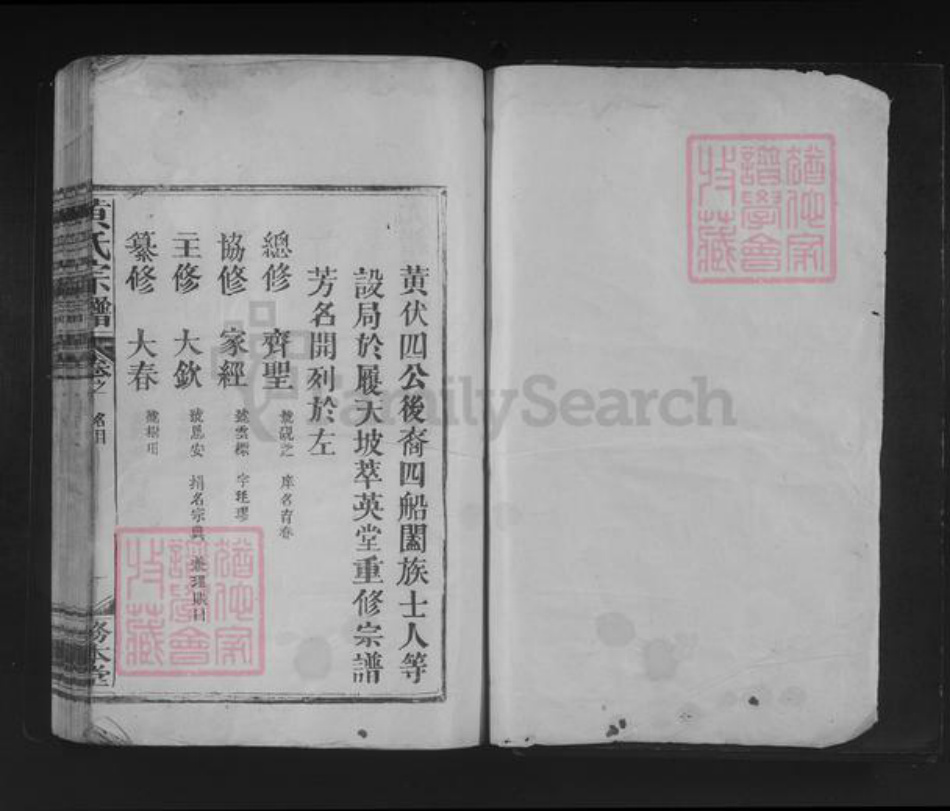 黄伏四公後裔四船闔族士人等
設局於履天坡萃英堂重修宗譜
芳名開列於左
總修 齊聖 號硯之 庠名育春
協修 家經 號雲標 字廷璆
主修 大欽 號恩安 捐名宗典 兼理賬目
纂修 大春 號
黄氏宗譜 卷之一 名目 一 務本堂
猶他家譜學會收藏
猶他家譜學會收藏
FamilySearch